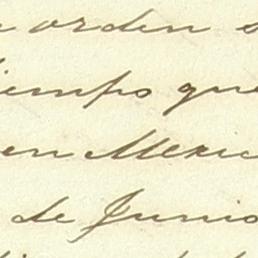 orden
tiempo que
en Mexic
de Junio